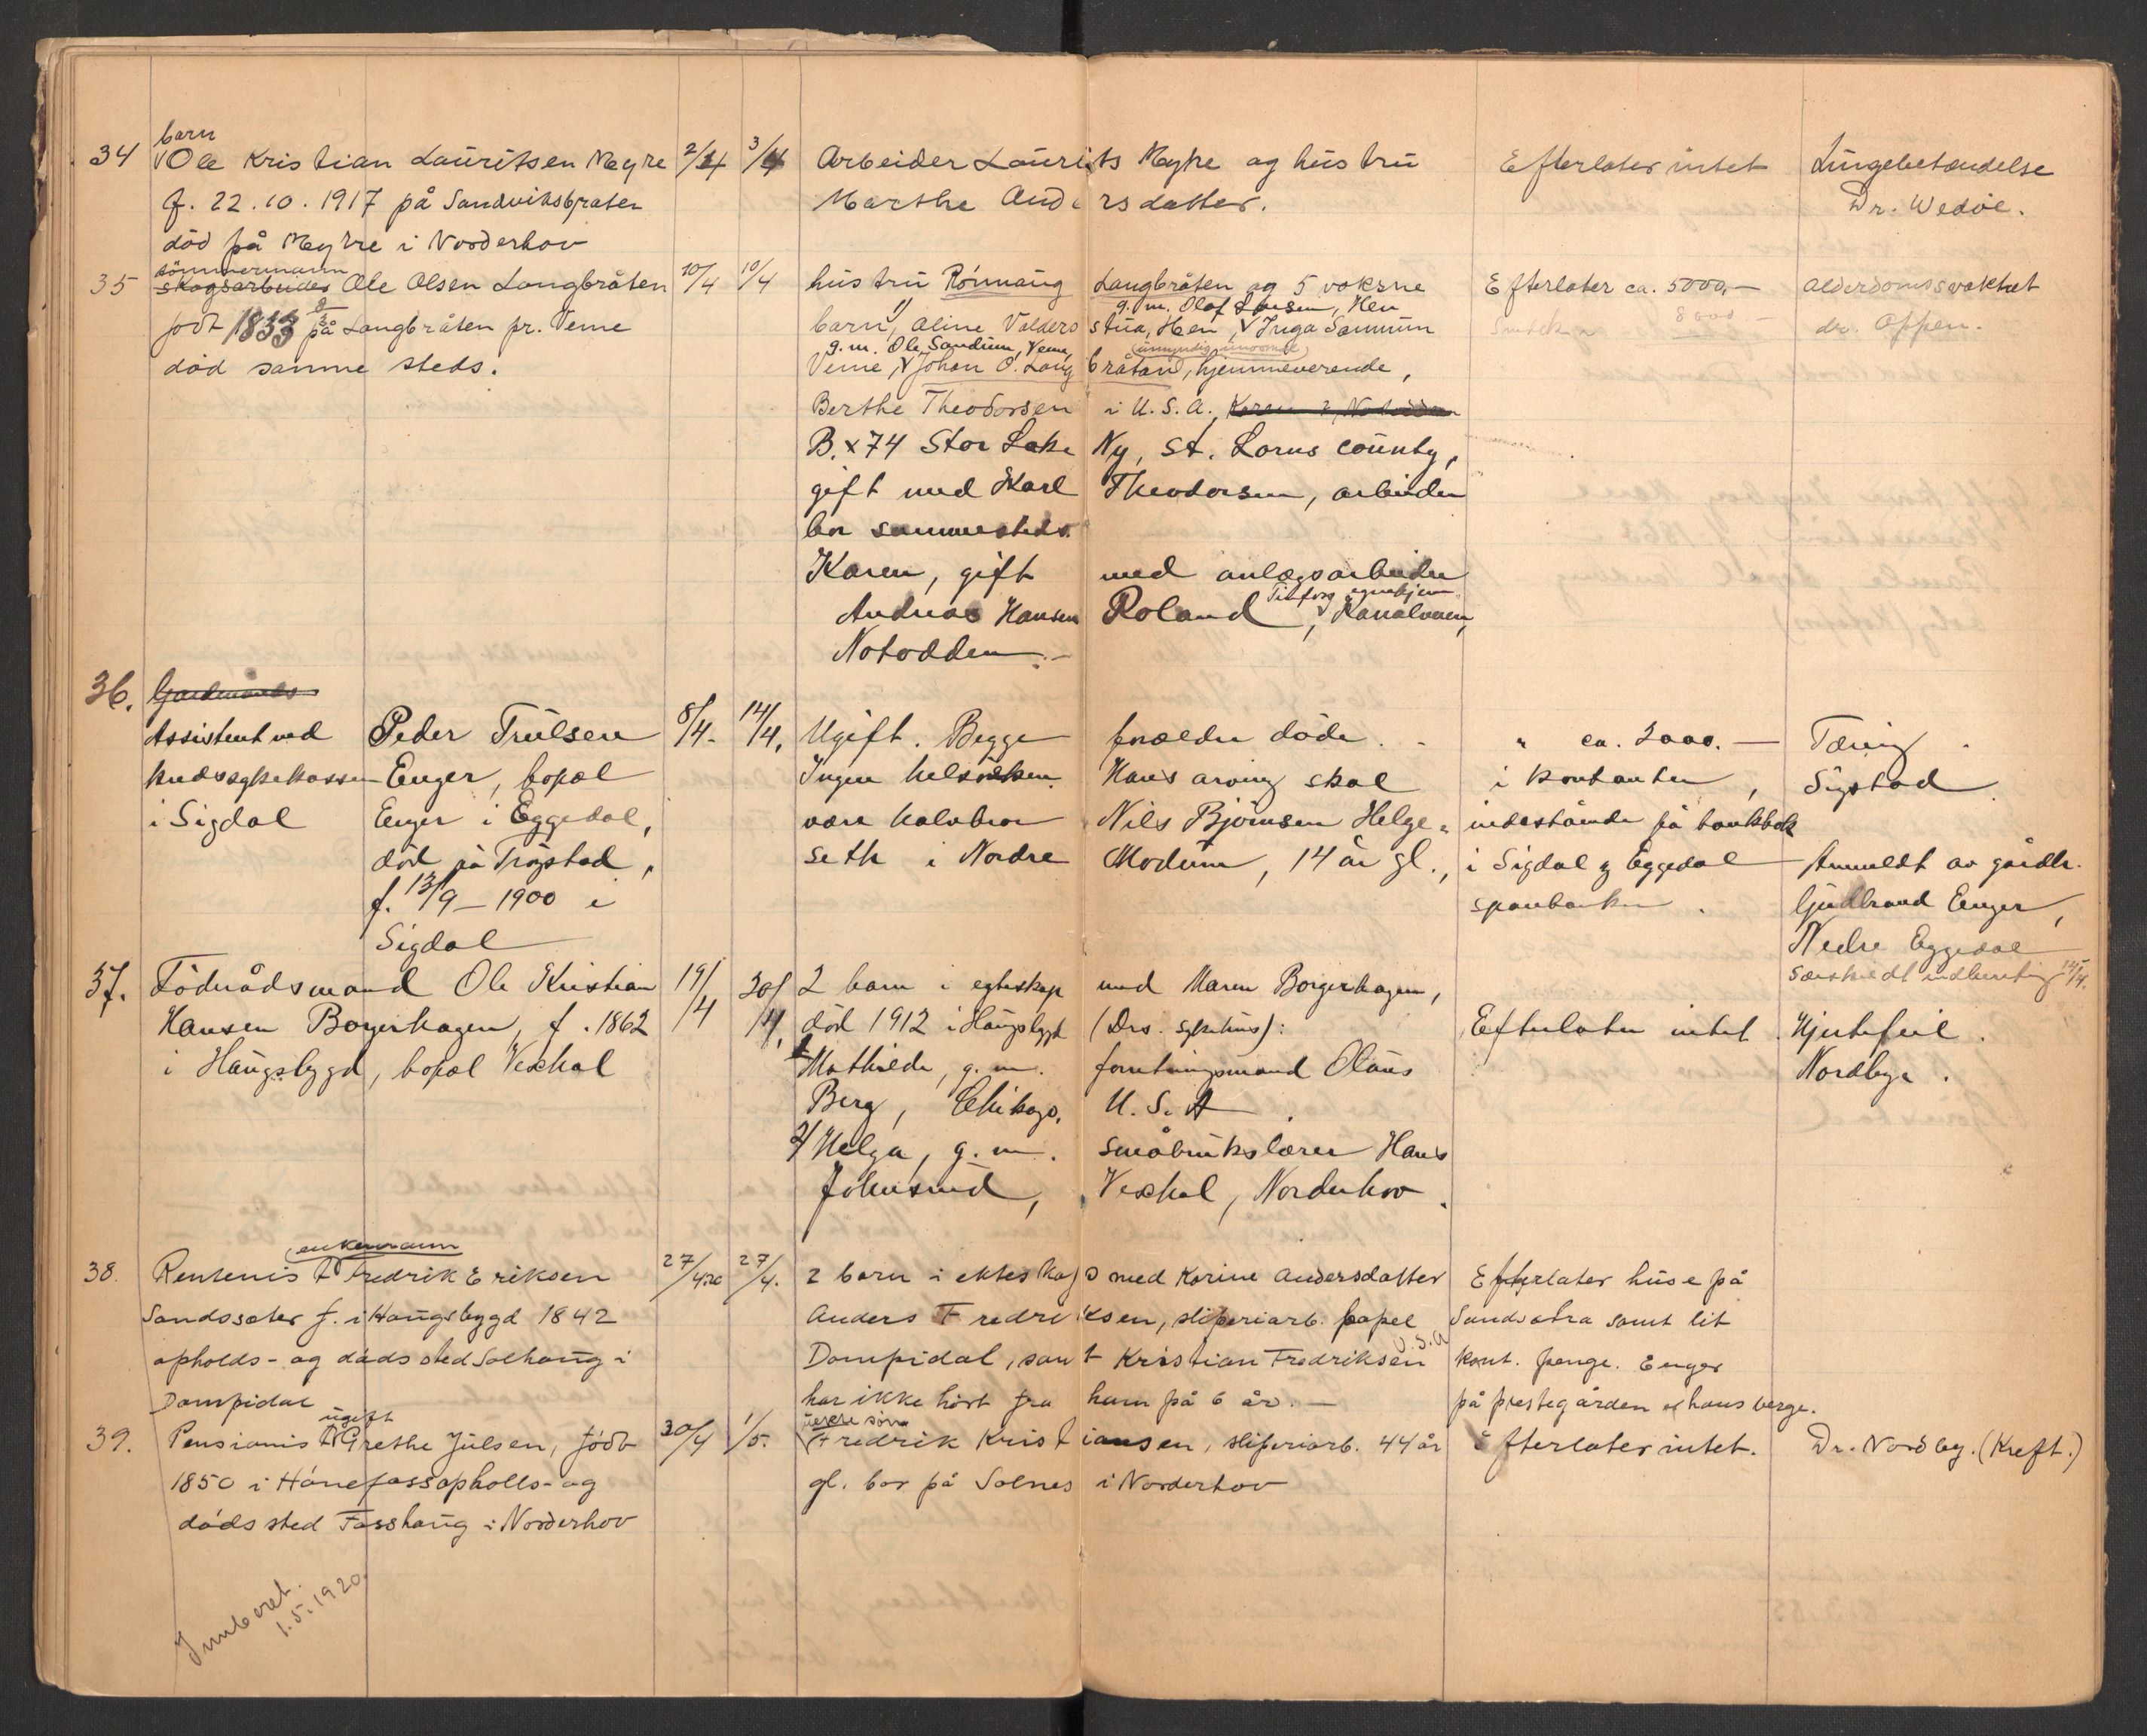 34
barn
Ole Kristian Lauritsen Meyre
f. 22.10.1917 på Sandviksbraten
död på Meyre i Norderhov
2/4
3/4
Arbeider Laurits Meyre og hustru
Marthe Andersdatter.
Efterlater intet
Lungebetændelse
Dr. Wedöe.
35
tömmermann
skogsarbeider Ole Olsen Langbråten
födt 1833 på Langbråten pr. Veme
död samme steds.
10/4
10/4
hustru Rönnaug Langbråten og 5 voksne
g. m. Olaf Larsen, Hen
barn, Aline Valdersstua, Hen, Inga Samum
g. m. Ole Sandum, Veme,
Veme, Johan O. Langbråtan, hjemmeverende,
Berthe Theodorsen i U.S.A., Karen
B.x74 Star Lake Ny, St. Lorns county,
gift med Karl Theodorsen, arbeider
bor sammesteds.
Karen, gift med anlægsarbeider
Andreas Hansen Roland, Kanalveien,
Notodden. -
Efterlater ca. 5000,-
8000 -
Alderdomssvakhet
dr. Oppen.
36.
Assistent ved
kredssykekassen
i Sigdal
Peder Trulsen
Enger, bopæl
Enger i Eggedal,
död på Trögstad,
f. 13/9 - 1900 i
Sigdal
8/4-
14/4,
Ugift. Begge forældre döde.
Ingen helsösken. Hans arving skal
være halvbror Nils Björnsen Helge-
seth i Nordre Modum, 14 år gl.,
" ca. 2000. -
i kontanter,
indestående på bankbok
i Sigdal og Eggedal
sparebank.
Tæring.
Sigstad
Anmeldt av gårdbr.
Gudbrand Enger,
Nedre Eggedal
Særskildt indberetning 14/4.
37.
Föderådsmand Ole Kristian
Hansen Borgerhagen, f. 1862
i Haugsbygd, bopæl Vexhal
19/4
20/4,
2 barn i egteskap med Maren Borgerhagen,
död 1912 i Haugsbygd (Drs. sykehus):
1/ Mathilde, g. m. forretningsmand Olaus
Berg, Chikago, U.S.A.
2/ Helga, g. m. småbrukslærer Hans
Johnsrud, Vexhal, Norderhov.
Efterlater intet.
Hjertefeil.
Nordbye.
38.
enkemann
Rentenist Fredrik Eriksen
Sandssæter f. i Haugsbygd 1842
opholds- og dødssted Solhaug i
Dampidal
27/4.20
27/4.
2 barn i ekteskap med Karine Andersdatter
Anders Fredriksen, sliperiarb. bopel
U.S.A
Dompidal, samt Kristian Fredriksen
har ikke hört fra ham på 6 år. -
Efterlater huse på
Sandsætra samt lit
kont. penge. Enger
på prestegården er hans verge.
39.
ugift
Pensionist Grethe Julsen, födt
1850 i Hönefoss opholds- og
dödssted Fosshaug i Norderhov
30/4
1/5.
uekte sönn
Fredrik Kristiansen, sliperiarb. 44 år
gl. bor på Solnes i Norderhov
Efterlater intet.
Dr. Nordby. (Kreft.)
Innberet.
1.5.1920